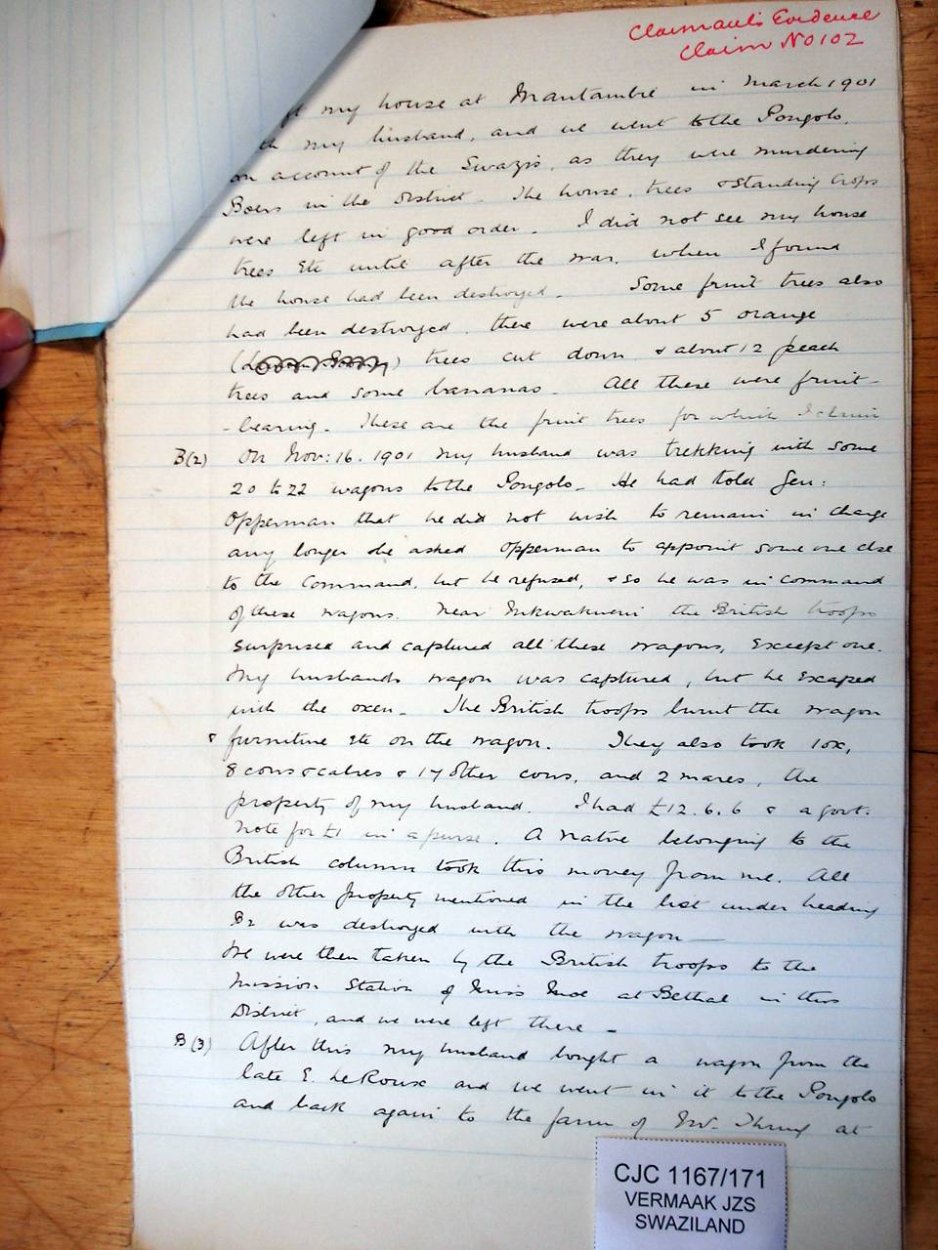 Claimant's Evidence
Claim No 102
my house at Mantambe in March 1901
my husband, and we went to the Pongolo.
on account of the Swazis, as they were murdering
Boers in the District. The house, trees & standing crops
were left in good order. I did not see my house
trees etc until after the war, when I found
the house had been destroyed. Some fruit trees also
had been destroyed. there were about 5 orange
trees cut down & about 12 peach
trees and some bananas. All these were fruit-
-bearing. These are the fruit trees for which I claim
B(2) On Nov: 16. 1901 my husband was trekking with some
20 to 22 wagons to the Pongolo. He had told Gen:
Opperman that he did not wish to remain in charge
any longer he asked Opperman to appoint some one else
to the Command, but he refused, & so he was in command
of these wagons. Near the British troops
surprised and captured all these wagons, except one.
My husbands wagon was captured, but he escaped
with the oxen. The British troops burnt the wagon
& furniture etc on the wagon. They also took 1 ox,
8 cows & calves & 17 other cows, and 2 mares, the
property of my husband. I had £12.6.6 & a govt.
note for £1 in a purse. A native belonging to the
British column took this money from me. All
the other property mentioned in the list under heading
B2 was destroyed with the wagon—
We were then taken by the British troops to the
Mission Station of Miss Moe at Bethal in this
District, and we were left there –
B(3) After this my husband bought a wagon from the
late E. Le Roux and we went in it to the Pongolo
and back again to the farm of at
CJC 1167/171
VERMAAK JZS
SWAZILAND